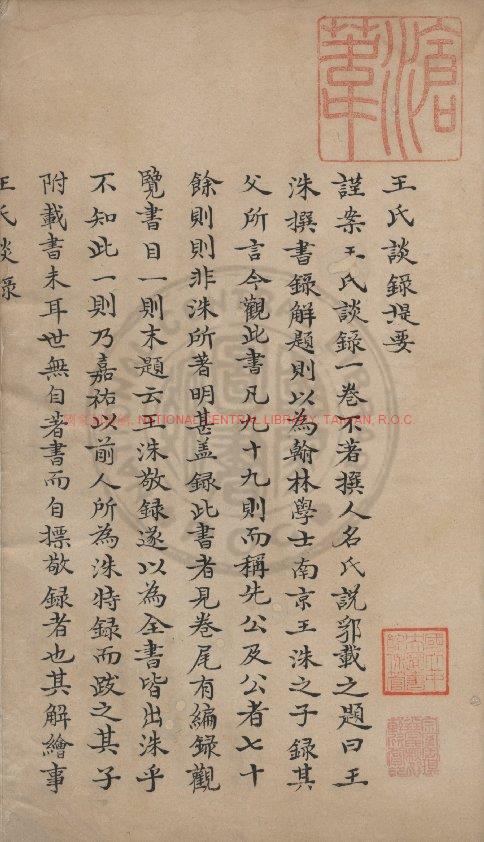 王氏談錄提要
謹案王氏談錄一卷不著撰人名氏説郛載之題曰王
洙撰書錄解題則以為翰林學士南京王洙之子錄其
父所言今觀此書凡九十九則而稱先公及公者七十
餘則則非洙所著明甚盖錄此書者見卷尾有編錄觀
覽書目一則末題云王洙敬錄遂以為全書皆出洙乎
不知此一則乃嘉祐以前人所為洙特錄而跋之其子
附載書末耳世無自著書而自標敬錄者也其解繪事
王氏談錄
滄葦
國家圖書館, NATIONAL CENTRAL LIBRARY, TAIWAN, R.O.C